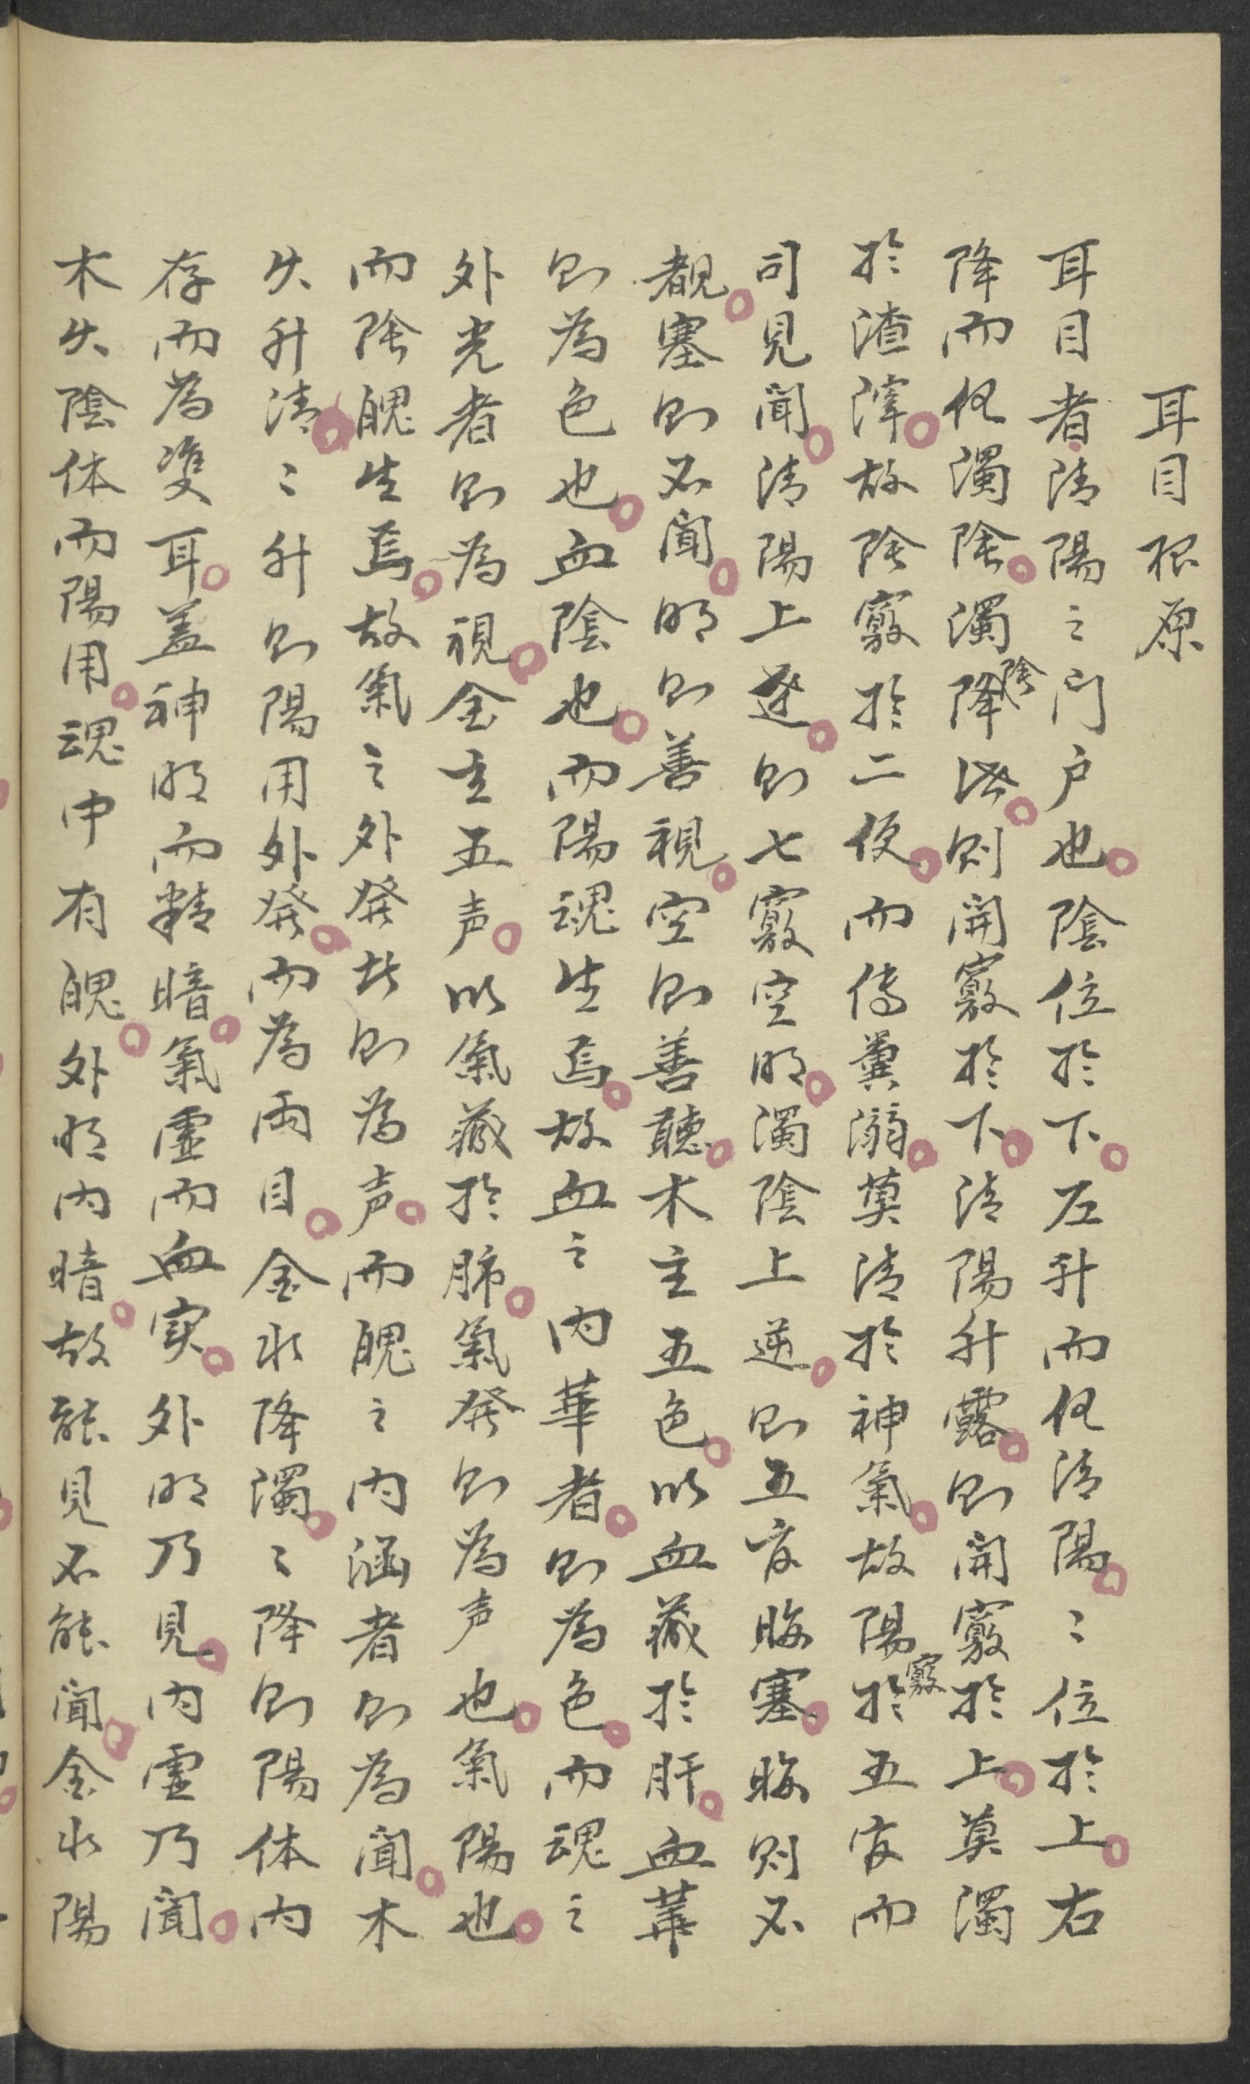 耳目根原
耳目者清陽之門户也陰位於下左升而化清陽〻位於上右
降而化濁陰濁陰降㳄則開竅於下清陽升露則開竅於上莫濁
於渣滓故陰竅於二便而傳糞溺莫清於神氣故陽竅於五官而
司見聞清陽上逆則七竅空明濁陰上逆則五官晦塞晦則不
覩塞則不聞明則善視空則善聽木主五色以血藏於肝血華
則為色也血陰也而陽魂生焉故血之内華者則為色而魂之
外光者則為視金主五声以氣藏於肺氣発則為声也氣陽也
而陰魄生焉故氣之外発此則為声而魄之内涵者則為聞木
火升清〻升則陽用外発而為両目金水降濁〻降則陽体内
存而為雙耳蓋神明而精暗氣虚而血実外明乃見内虚乃聞
木火陰体而陽用魂中有魄外明内暗故能見不能聞金水陽